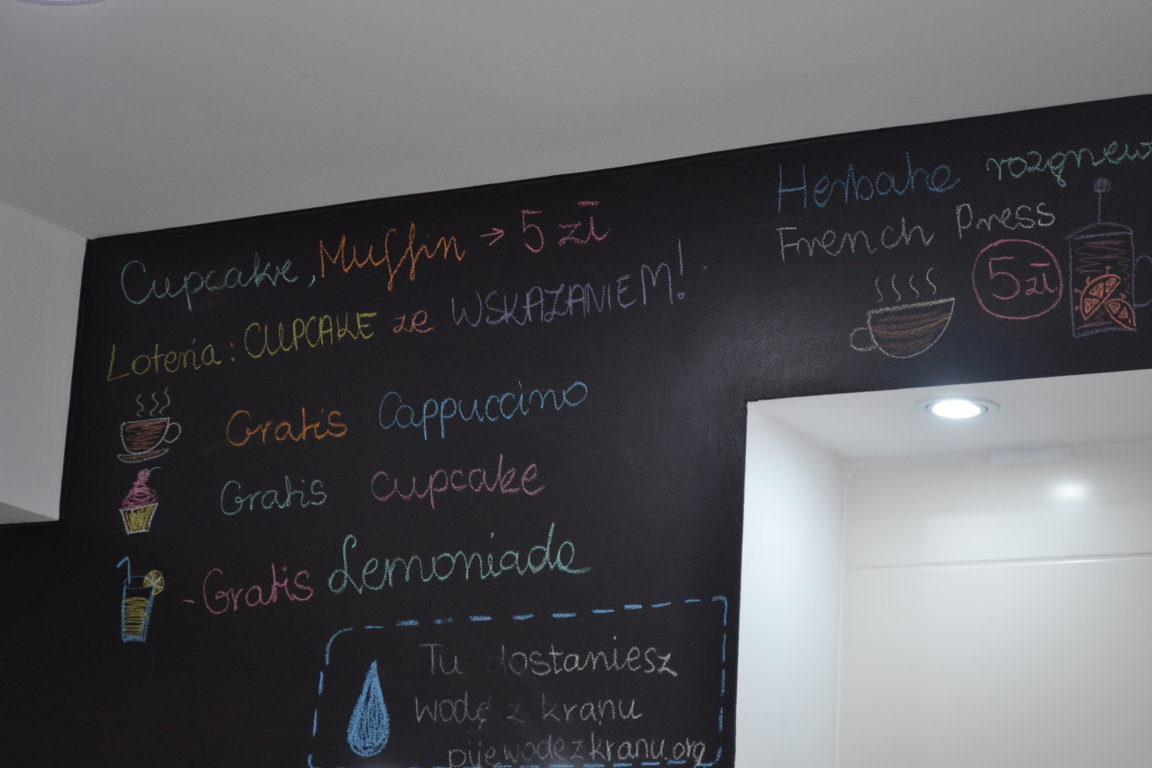 Cupcake, Muffin → 5 zł
Loteria: CUPCAKE ze WSKAZANIEM!
Gratis Cappuccino
Gratis cupcake
- Gratis Lemoniada
Tu dostaniesz
wodę z kranu
pijewodezkranu.org
Herbata
French Press
5 zł